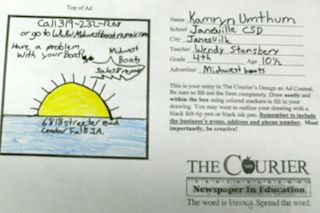 Top of Ad
Call 319-232-1268
or go to WWW.Midwestboatremair.com
Have a problem
With your Boats?
Midwest
Boats
Sales
6818 streeter Road
Cendar Falls IA.
Name Kamryn Umthum
School Janesville CSD
City Janesville
Teacher Wendy Stansbery
Grade 4th Age 10½
Advertiser Midwest boats
This is your entry in The Courier's Design an Ad Contest.
Be sure to fill out the form completely. Draw neatly and
within the box using colored markers to fill in your
drawing. You may want to outline your drawing with a
black felt-tip pen or black ink pen. Remember to include
the business's name, address and phone number. Most
importantly, be creative!
THE COURIER
Newspaper In Education
The word is Strong. Spread the word.